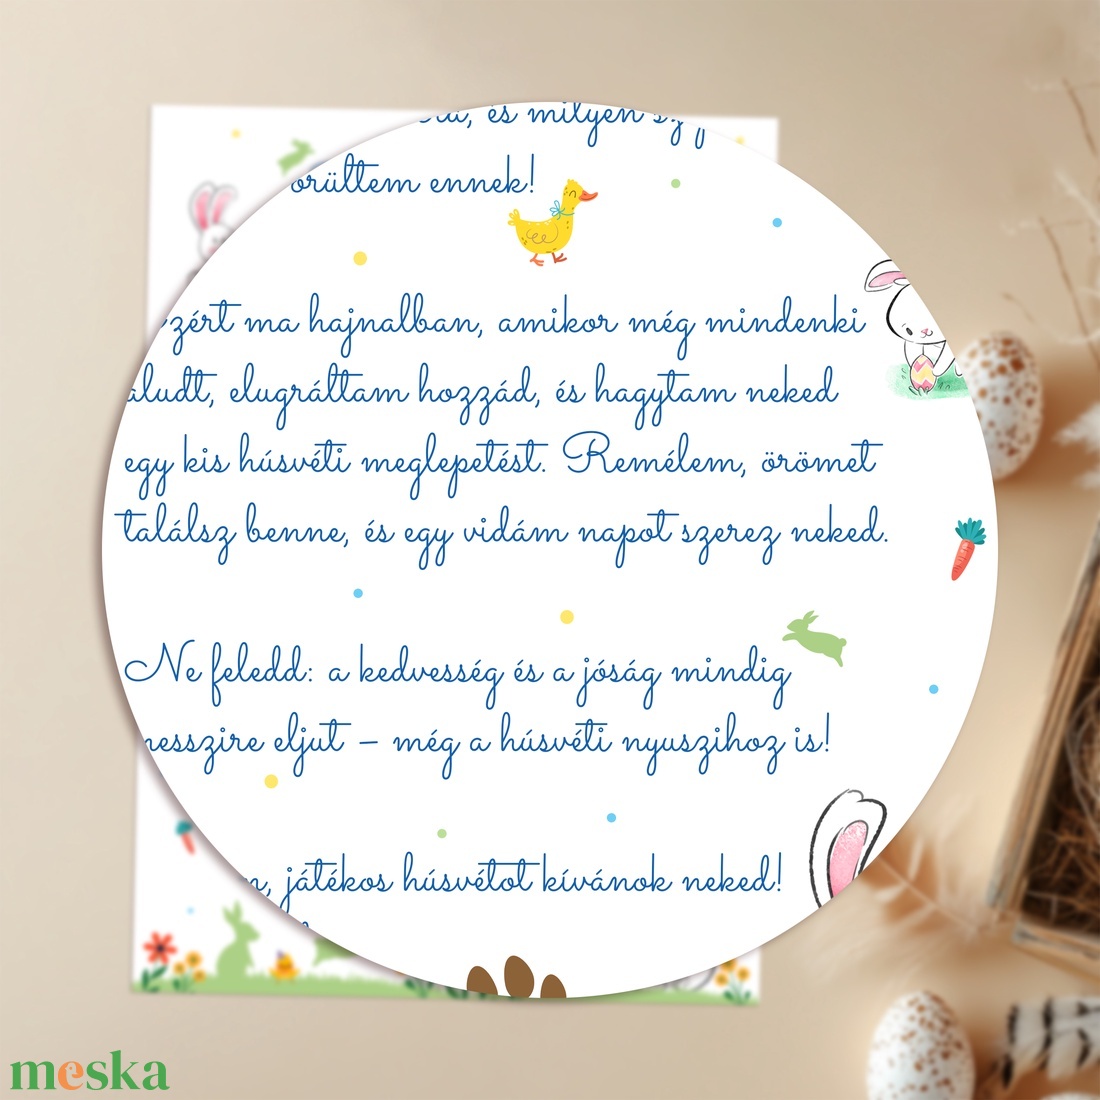 és milyen
örültem ennek!
ma hajnalban, amikor még mindenki
aludt, elugráltam hozzád, és hagytam neked
egy kis húsvéti meglepetést. Remélem, örömet
találsz benne, és egy vidám napot szerez neked.
Ne feledd: a kedvesség és a jóság mindig
messzire eljut – még a húsvéti nyuszihoz is!
játékos húsvétot kívánok neked!
meska